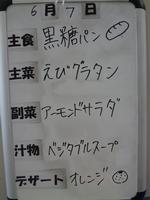 6月7日
主食 黒糖パン
主菜 えびグラタン
副菜 アーモンドサラダ
汁物 ベジタブルスープ
デザート オレンジ